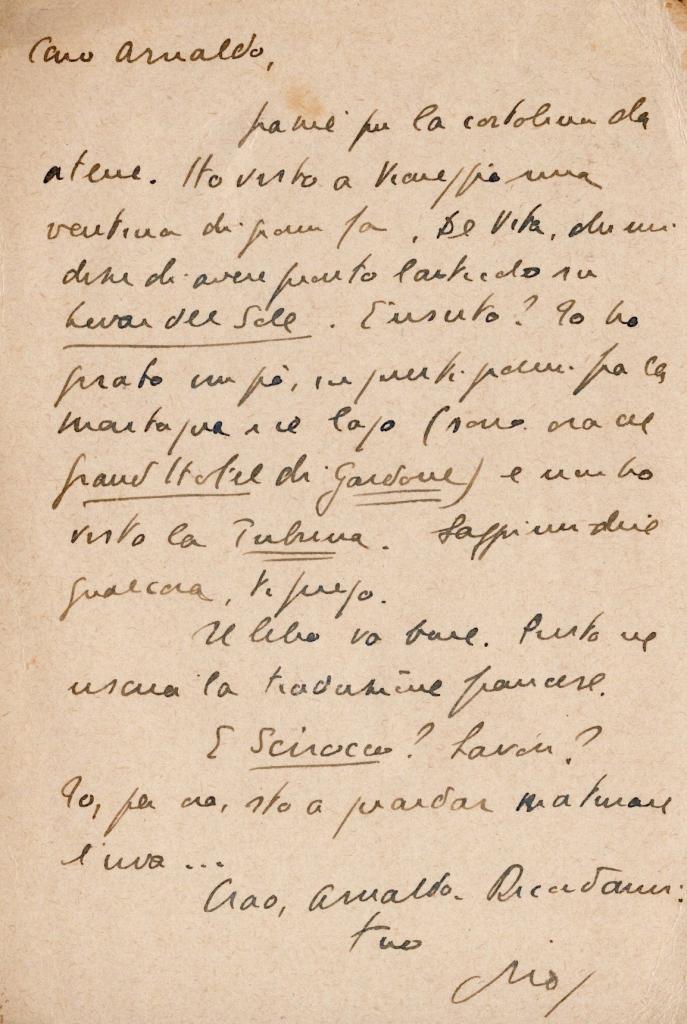 Caro Arnaldo,
grazie per la cartolina da
Atene. Ho visto a Viareggio una
ventina di giorni fa, De Vita, che mi
disse di avere pronto l'articolo su
Levar del Sole. È uscito? Io ho
girato un pò, in questi giorni fra la
montagna e il lago (sono ora al
Grand Hotel di Gardone) e non ho
visto la Tribuna. Sappimi dire
qualcosa, ti prego.
Il libro va bene. Presto ne
uscirà la traduzione francese.
E Scirocco? Lavori?
Io, per ora, sto a guardar maturare
l'uva ...
Ciao, Arnaldo. Ricordami.
tuo